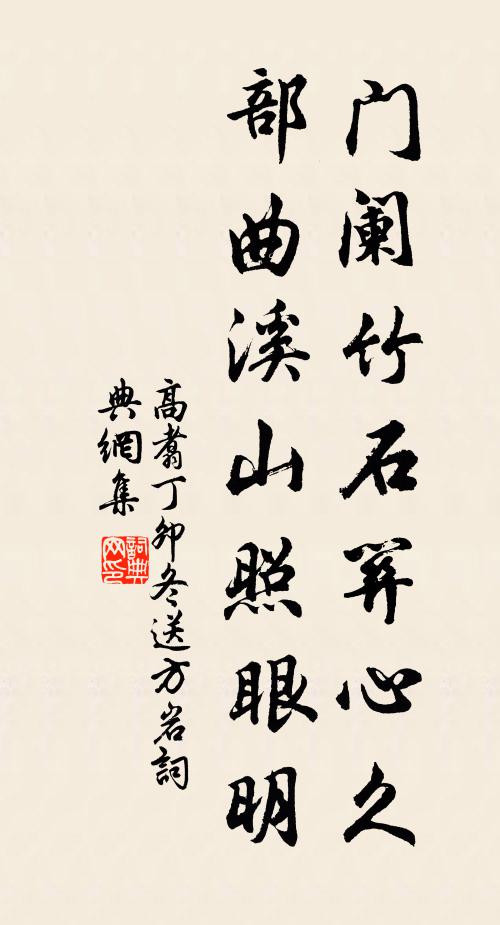 门阑竹石開心久
部曲溪山照眼明
高翥丁卯冬送方岩詞
典網集
詞典
网印